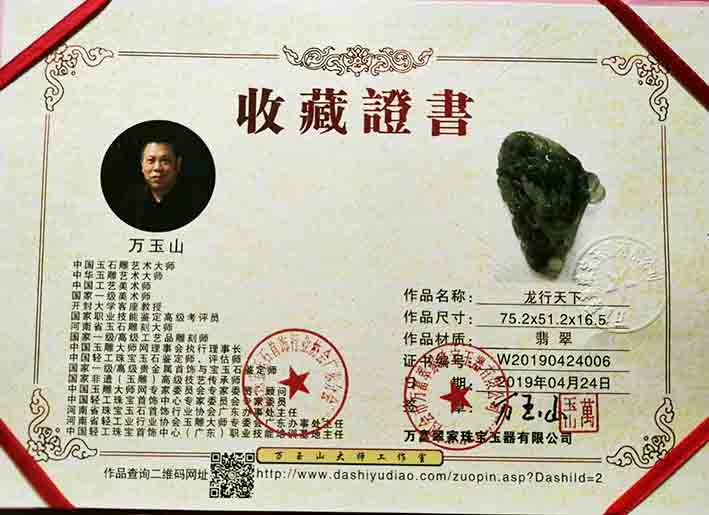 收藏證書
万玉山
中国玉石雕艺术大师
中华玉雕艺术大师
中国工艺美术师
国家一级美术师
开封大学客座教授
国家职业技能鉴定高级考评员
河南省玉石雕刻大师
国家一级/高级工艺品雕刻师
中国玉雕大师网理事会执行理事长
中国轻工珠宝玉石鉴定师、评估师
国家一级/高级贵金属首饰与宝玉石鉴定师
国家非遗(玉雕)高级技艺传承师
中国玉雕大师网专家委员会专家委员 顾问
中国轻工珠宝首饰中心专家委员会专家委员
河南省珠宝玉石首饰行业协会广东办事处主任
河南省轻工业行业协会玉雕大师专委会广东办事处主任
中国轻工珠宝首饰中心(广东)职业技能培训基地主任
作品名称: 龙行天下
作品尺寸: 75.2x51.2x16.5
作品材质: 翡翠
证书编号: W20190424006
日期: 2019年04月24日
签章: 万玉山
万富翠家珠宝玉器有限公司
万玉山大师工作室
作品查询二维码网址 http://www.dashiyudiao.com/zuopin.asp?DashiId=2